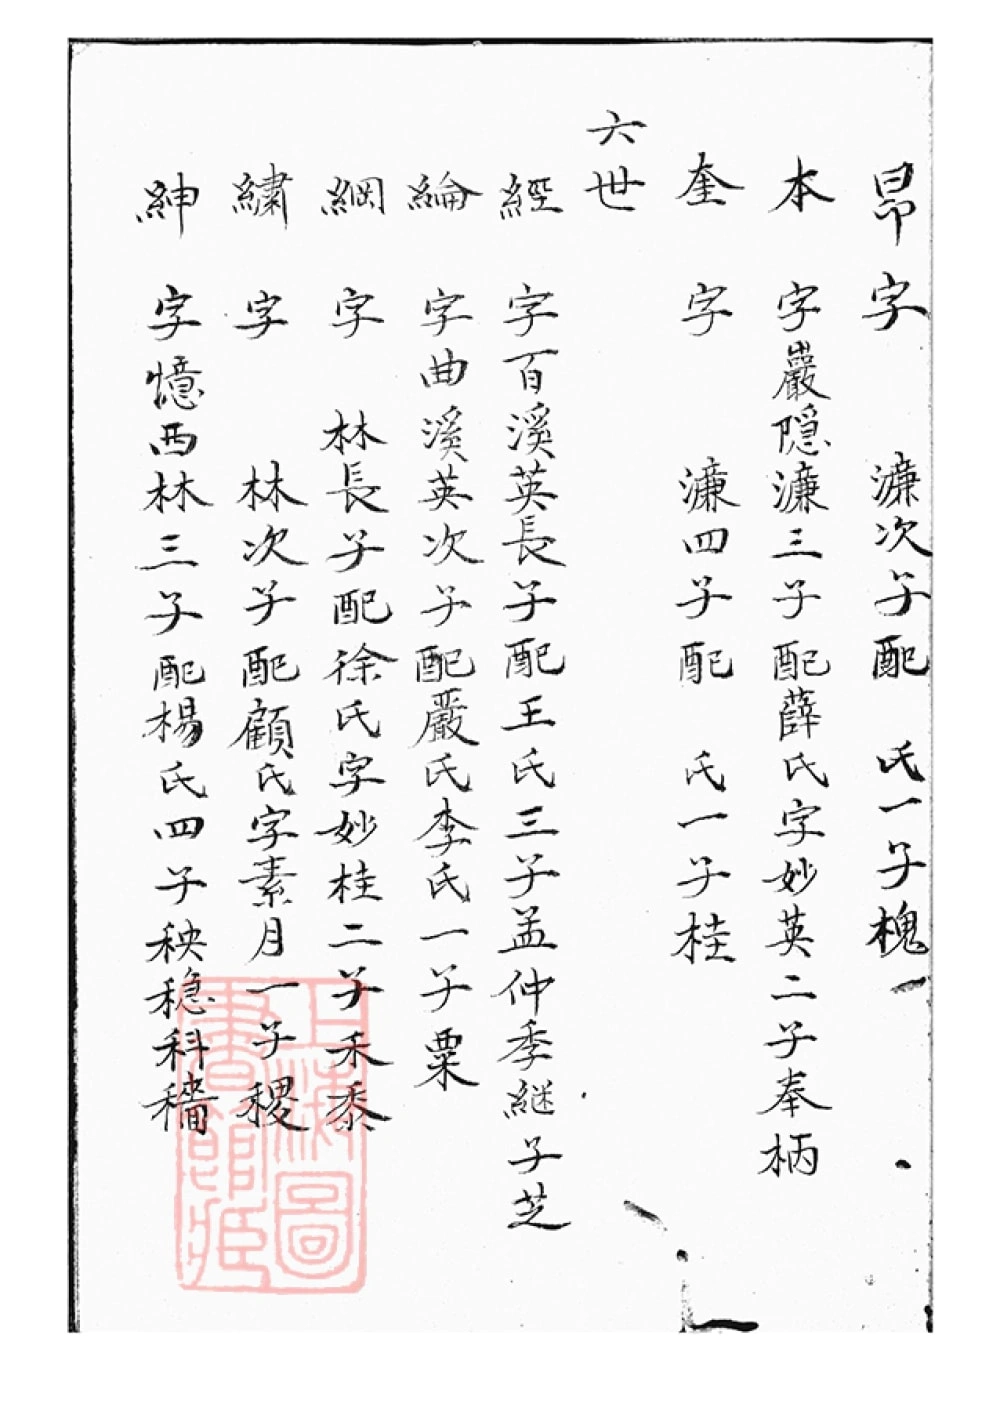 昂字　濂次子配　氏一子槐
本　字巖隠濂三子配薛氏字妙英二子奉柄
奎　字　濂四子配　氏一子桂
六世
經　字百溪英長子配王氏三子孟仲季継子芝
綸　字曲溪英次子配嚴氏李氏一子粟
綱　字　林長子配徐氏字妙桂二子禾黍
繡　字　林次子配顧氏字素月一子稷
紳　字憶西林三子配楊氏四子秧穏科穡
上海圖書館藏